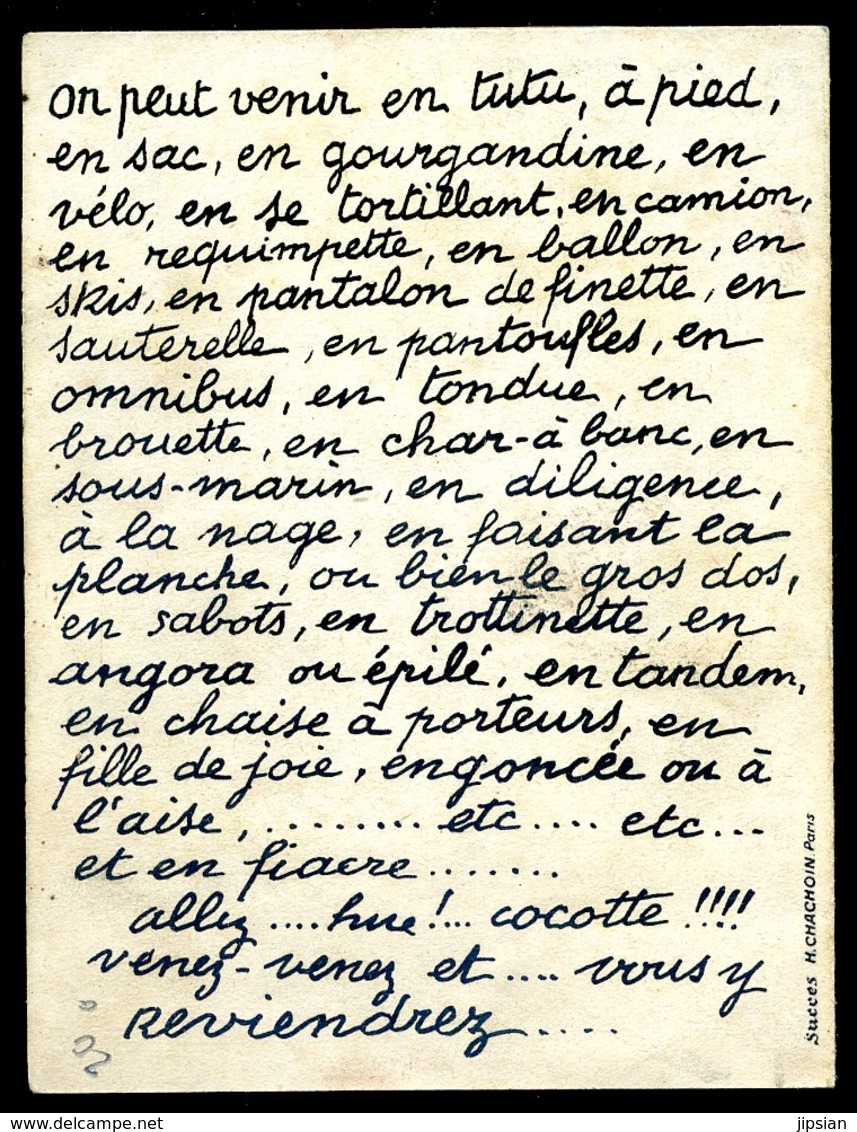 on peut venir en tutu, à pied,
en sac, en gourgandine, en
vélo, en se tortillant, en camion,
en requimpette, en ballon, en
skis, en pantalon de finette, en
sauterelle, en pantoufles, en
omnibus, en tondue, en
brouette, en char-à banc, en
sous-marin, en diligence,
à la nage, en faisant la
planche, ou bien le gros dos,
en sabots, en trottinette, en
angora ou épilé, en tandem,
en chaise à porteurs, en
fille de joie, engoncée ou à
l'aise, ......... etc .... etc...
et en fiacre ........
allez .... hue!... cocotte !!!!
venez-venez et .... vous y
Reviendrez .....
Succes H.CHACHOIN.Paris
delcampe.net
jipsian